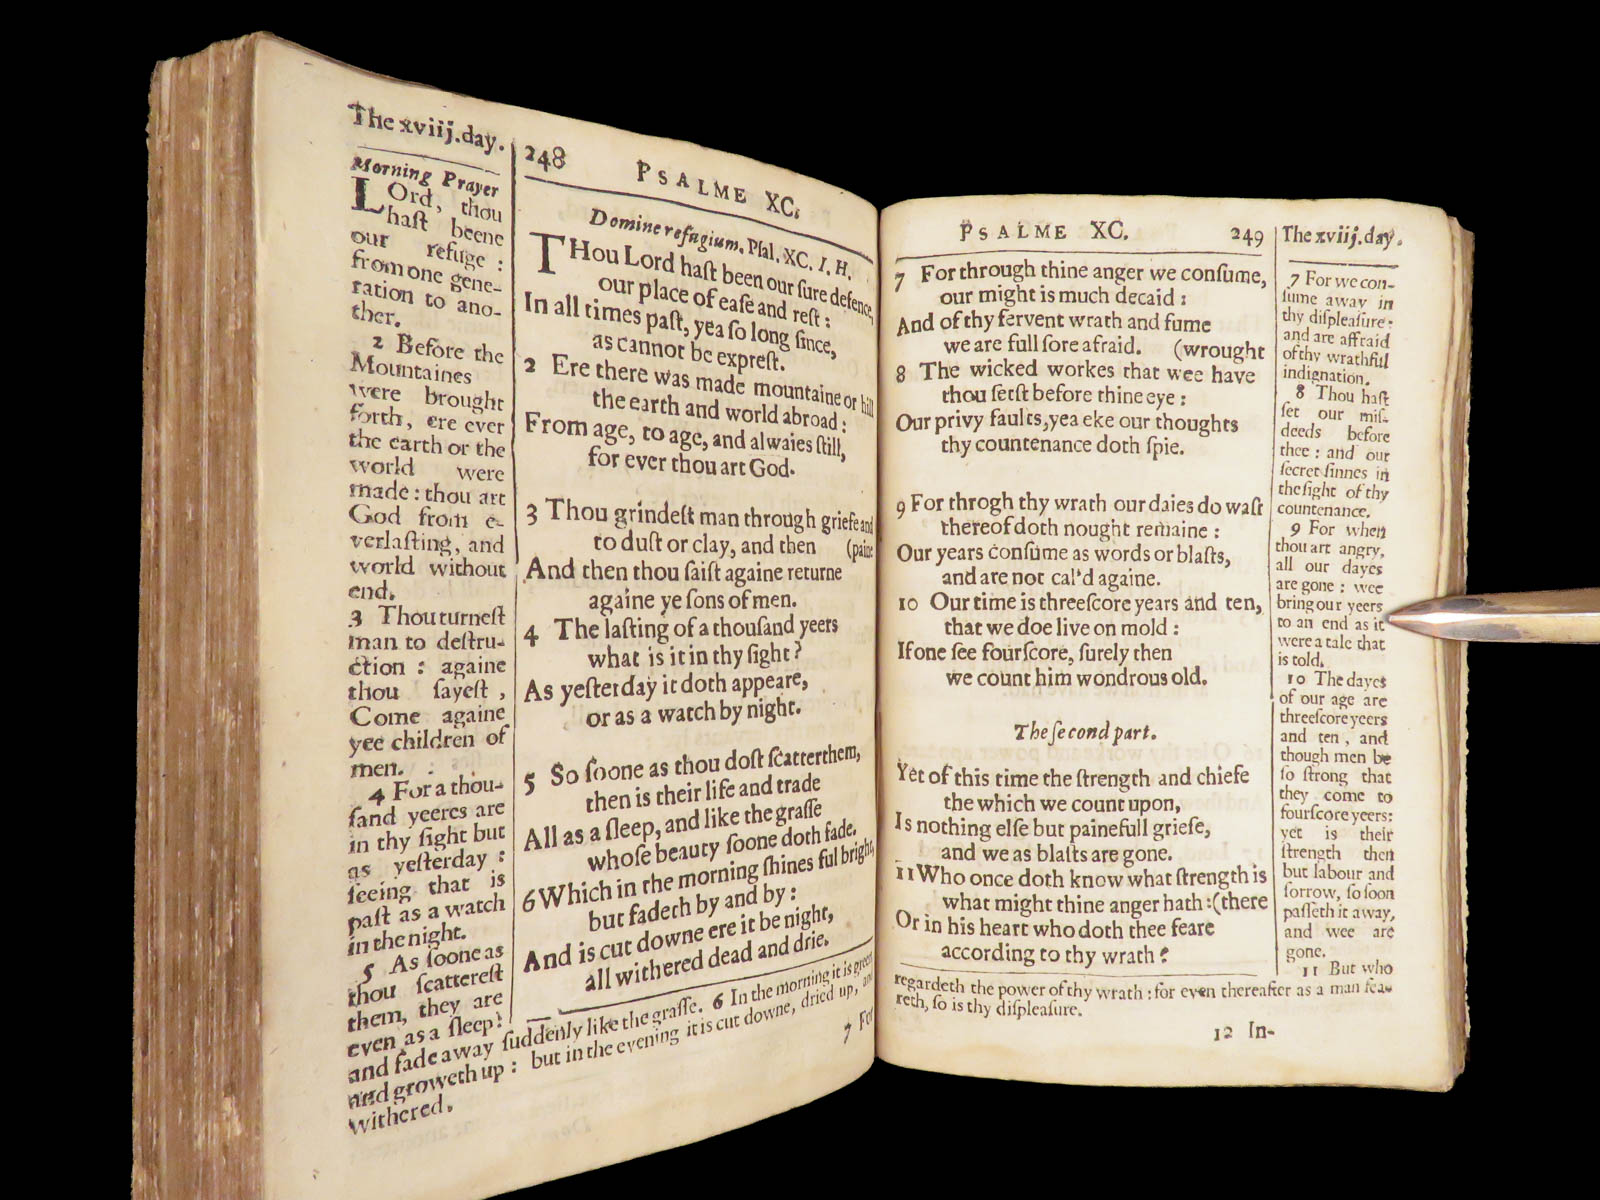 The xviij.day.
Morning Prayer
LOrd, thou
haſt beene
our refuge :
from one gene-
ration to ano-
ther.
2 Before the
Mountaines
were brought
forth, ere ever
the earth or the
world were
made : thou art
God from e-
verlaſting, and
world without
end.
3 Thou turneſt
man to deſtru-
ction : againe
thou ſayeſt ,
Come againe
yee children of
men.
4 For a thou-
ſand yeeres are
in thy ſight but
as yeſterday :
ſeeing that is
paſt as a watch
in the night.
5 As ſoone as
thou ſcattereſt
them, they are
even as a ſleep:
and fade away ſuddenly like the graſſe. 6 In the morning it is green
and groweth up : but in the evening it is cut downe, dried up, and
withered.
248 PSALME XC.
Domine refugium. Pſal. XC. I. H.
THou Lord haſt been our ſure defence,
our place of eaſe and reſt :
In all times paſt, yea ſo long ſince,
as cannot be expreſt.
2 Ere there was made mountaine or hill
the earth and world abroad :
From age, to age, and alwaies ſtill,
for ever thou art God.
3 Thou grindeſt man through griefe and
to duſt or clay, and then (paine
And then thou ſaiſt againe returne
againe ye ſons of men.
4 The laſting of a thouſand yeers
what is it in thy ſight ?
As yeſterday it doth appeare,
or as a watch by night.
5 So ſoone as thou doſt ſcatter them,
then is their life and trade
All as a ſleep, and like the graſſe
whoſe beauty ſoone doth fade.
6 Which in the morning ſhines ful bright,
but fadeth by and by :
And is cut downe ere it be night,
all withered dead and drie.
7 For
PSALME XC. 249
7 For through thine anger we conſume,
our might is much decaid :
And of thy fervent wrath and fume
we are full ſore afraid. (wrought
8 The wicked workes that wee have
thou ſetſt before thine eye :
Our privy faults, yea eke our thoughts
thy countenance doth ſpie.
9 For throgh thy wrath our daies do waſt
thereof doth nought remaine :
Our years conſume as words or blaſts,
and are not cal'd againe.
10 Our time is threeſcore years and ten,
that we doe live on mold :
If one ſee fourſcore, ſurely then
we count him wondrous old.
The ſecond part.
Yet of this time the ſtrength and chiefe
the which we count upon,
Is nothing elſe but painefull griefe,
and we as blaſts are gone.
11 Who once doth know what ſtrength is
what might thine anger hath : (there
Or in his heart who doth thee feare
according to thy wrath ?
The xviij.day.
7 For we con-
ſume away in
thy diſpleaſure:
and are affraid
of thy wrathfull
indignation.
8 Thou haſt
ſet our miſ-
deeds before
thee : and our
ſecret ſinnes in
the ſight of thy
countenance.
9 For when
thou art angry,
all our dayes
are gone : wee
bring our yeers
to an end as it
were a tale that
is told.
10 The dayes
of our age are
threeſcore yeers
and ten , and
though men be
ſo ſtrong that
they come to
fourſcore yeers:
yet is their
ſtrength then
but labour and
ſorrow, ſo ſoon
paſſeth it away,
and wee are
gone.
11 But who
regardeth the power of thy wrath : for even thereafter as a man fea-
reth, ſo is thy diſpleaſure.
12 In-